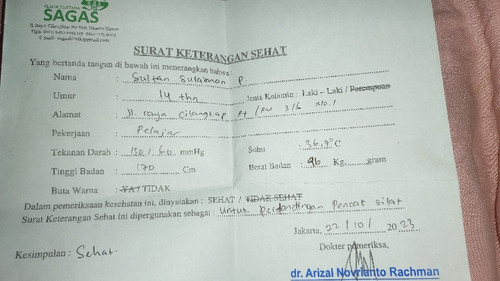 SAGAS
SURAT KETERANGAN SEHAT
Yang bertanda tangan di bawah ini menerangkan bahwa:
Nama : Sultan Sulaiman P.
Umur : 14 thn Jenis Kelamin : Laki - Laki / Perempuan
Alamat : Jl. raya cilangkap Rt / RW 3/6 No.1
Pekerjaan : Pelajar
Tekanan Darah : 130/60 mmHg Suhu : 36,9°C
Tinggi Badan : 170 Cm Berat Badan : 96 Kg, gram
Buta Warna : YA / TIDAK
Dalam pemeriksaan kesehatan ini, dinyatakan : SEHAT / TIDAK SEHAT
Surat Keterangan Sehat ini dipergunakan sebagai : Untuk pertandingan Pencat silat
Jakarta, 22/10/ 2023
Kesimpulan : Sehat. Dokter pemeriksa,
dr. Arizal Novrianto Rachman